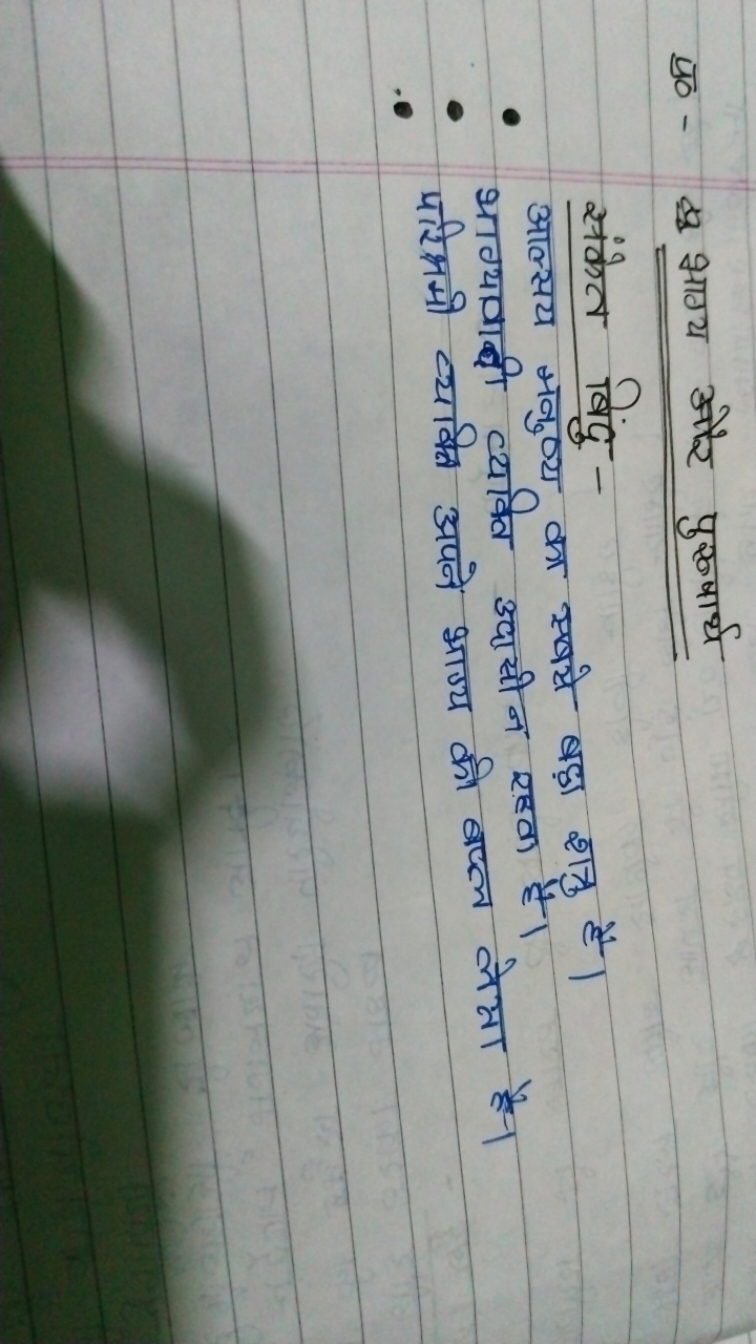 प्र०- भाग्य और पुरुषार्थ
संकेत बिंदु -
• आलस्य मनुष्य का सबसे बड़ा शत्रु है।
• भाग्यवादी व्यक्ति उदासीन रहता है।
• परिश्रमी व्यक्ति अपने भाग्य को बदल लेता है।